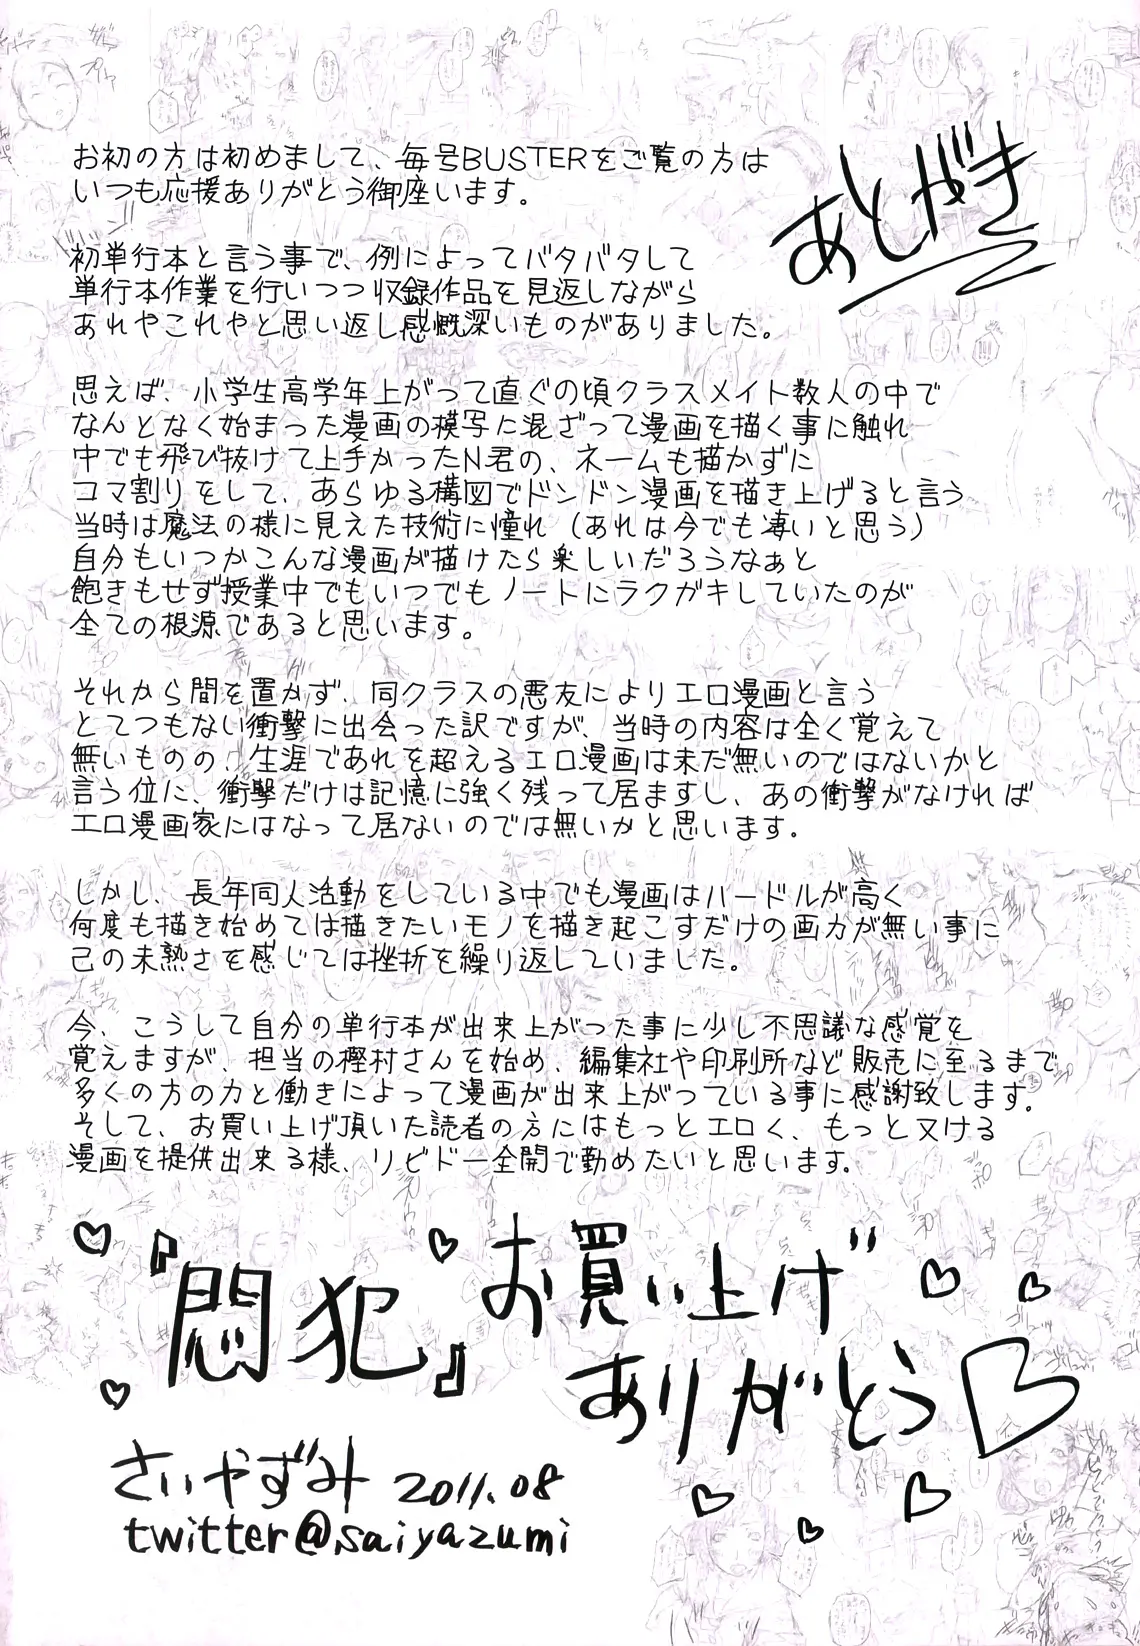 あとがき
お初の方は初めまして、毎号BUSTERをご覧の方は
いつも応援ありがとう御座います。
初単行本と言う事で、例によってバタバタして
単行本作業を行いつつ収録作品を見返しながら
あれやこれやと思い返し感慨深いものがありました。
思えば、小学生高学年上がって直ぐの頃クラスメイト数人の中で
なんとなく始まった漫画の模写に混ざって漫画を描く事に触れ
中でも飛び抜けて上手かったN君の、ネームも描かずに
コマ割りをして、あらゆる構図でドンドン漫画を描き上げると言う
当時は魔法の様に見えた技術に憧れ（あれは今でも凄いと思う）
自分もいつかこんな漫画が描けたら楽しいだろうなぁと
飽きもせず授業中でもいつでもノートにラクガキしていたのが
全ての根源であると思います。
それから間を置かず、同クラスの悪友によりエロ漫画と言う
とてつもない衝撃に出会った訳ですが、当時の内容は全く覚えて
無いものの、生涯であれを超えるエロ漫画は未だ無いのではないかと
言う位に、衝撃だけは記憶に強く残って居ますし、あの衝撃がなければ
エロ漫画家にはなって居ないのでは無いかと思います。
しかし、長年同人活動をしている中でも漫画はハードルが高く
何度も描き始めては描きたいモノを描き起こすだけの画力が無い事に
己の未熟さを感じては挫折を繰り返していました。
今、こうして自分の単行本が出来上がった事に少し不思議な感覚を
覚えますが、担当の樫村さんを始め、編集社や印刷所など販売に至るまで
多くの方の力と働きによって漫画が出来上がっている事に感謝致します。
そして、お買い上げ頂いた読者の方にはもっとエロく、もっと叉ける
漫画を提供出来る様、リビドー全開で勤めたいと思います。
『悶犯』お買い上げ
ありがとう
さいやずみ 2011.08
twitter@saiyazumi